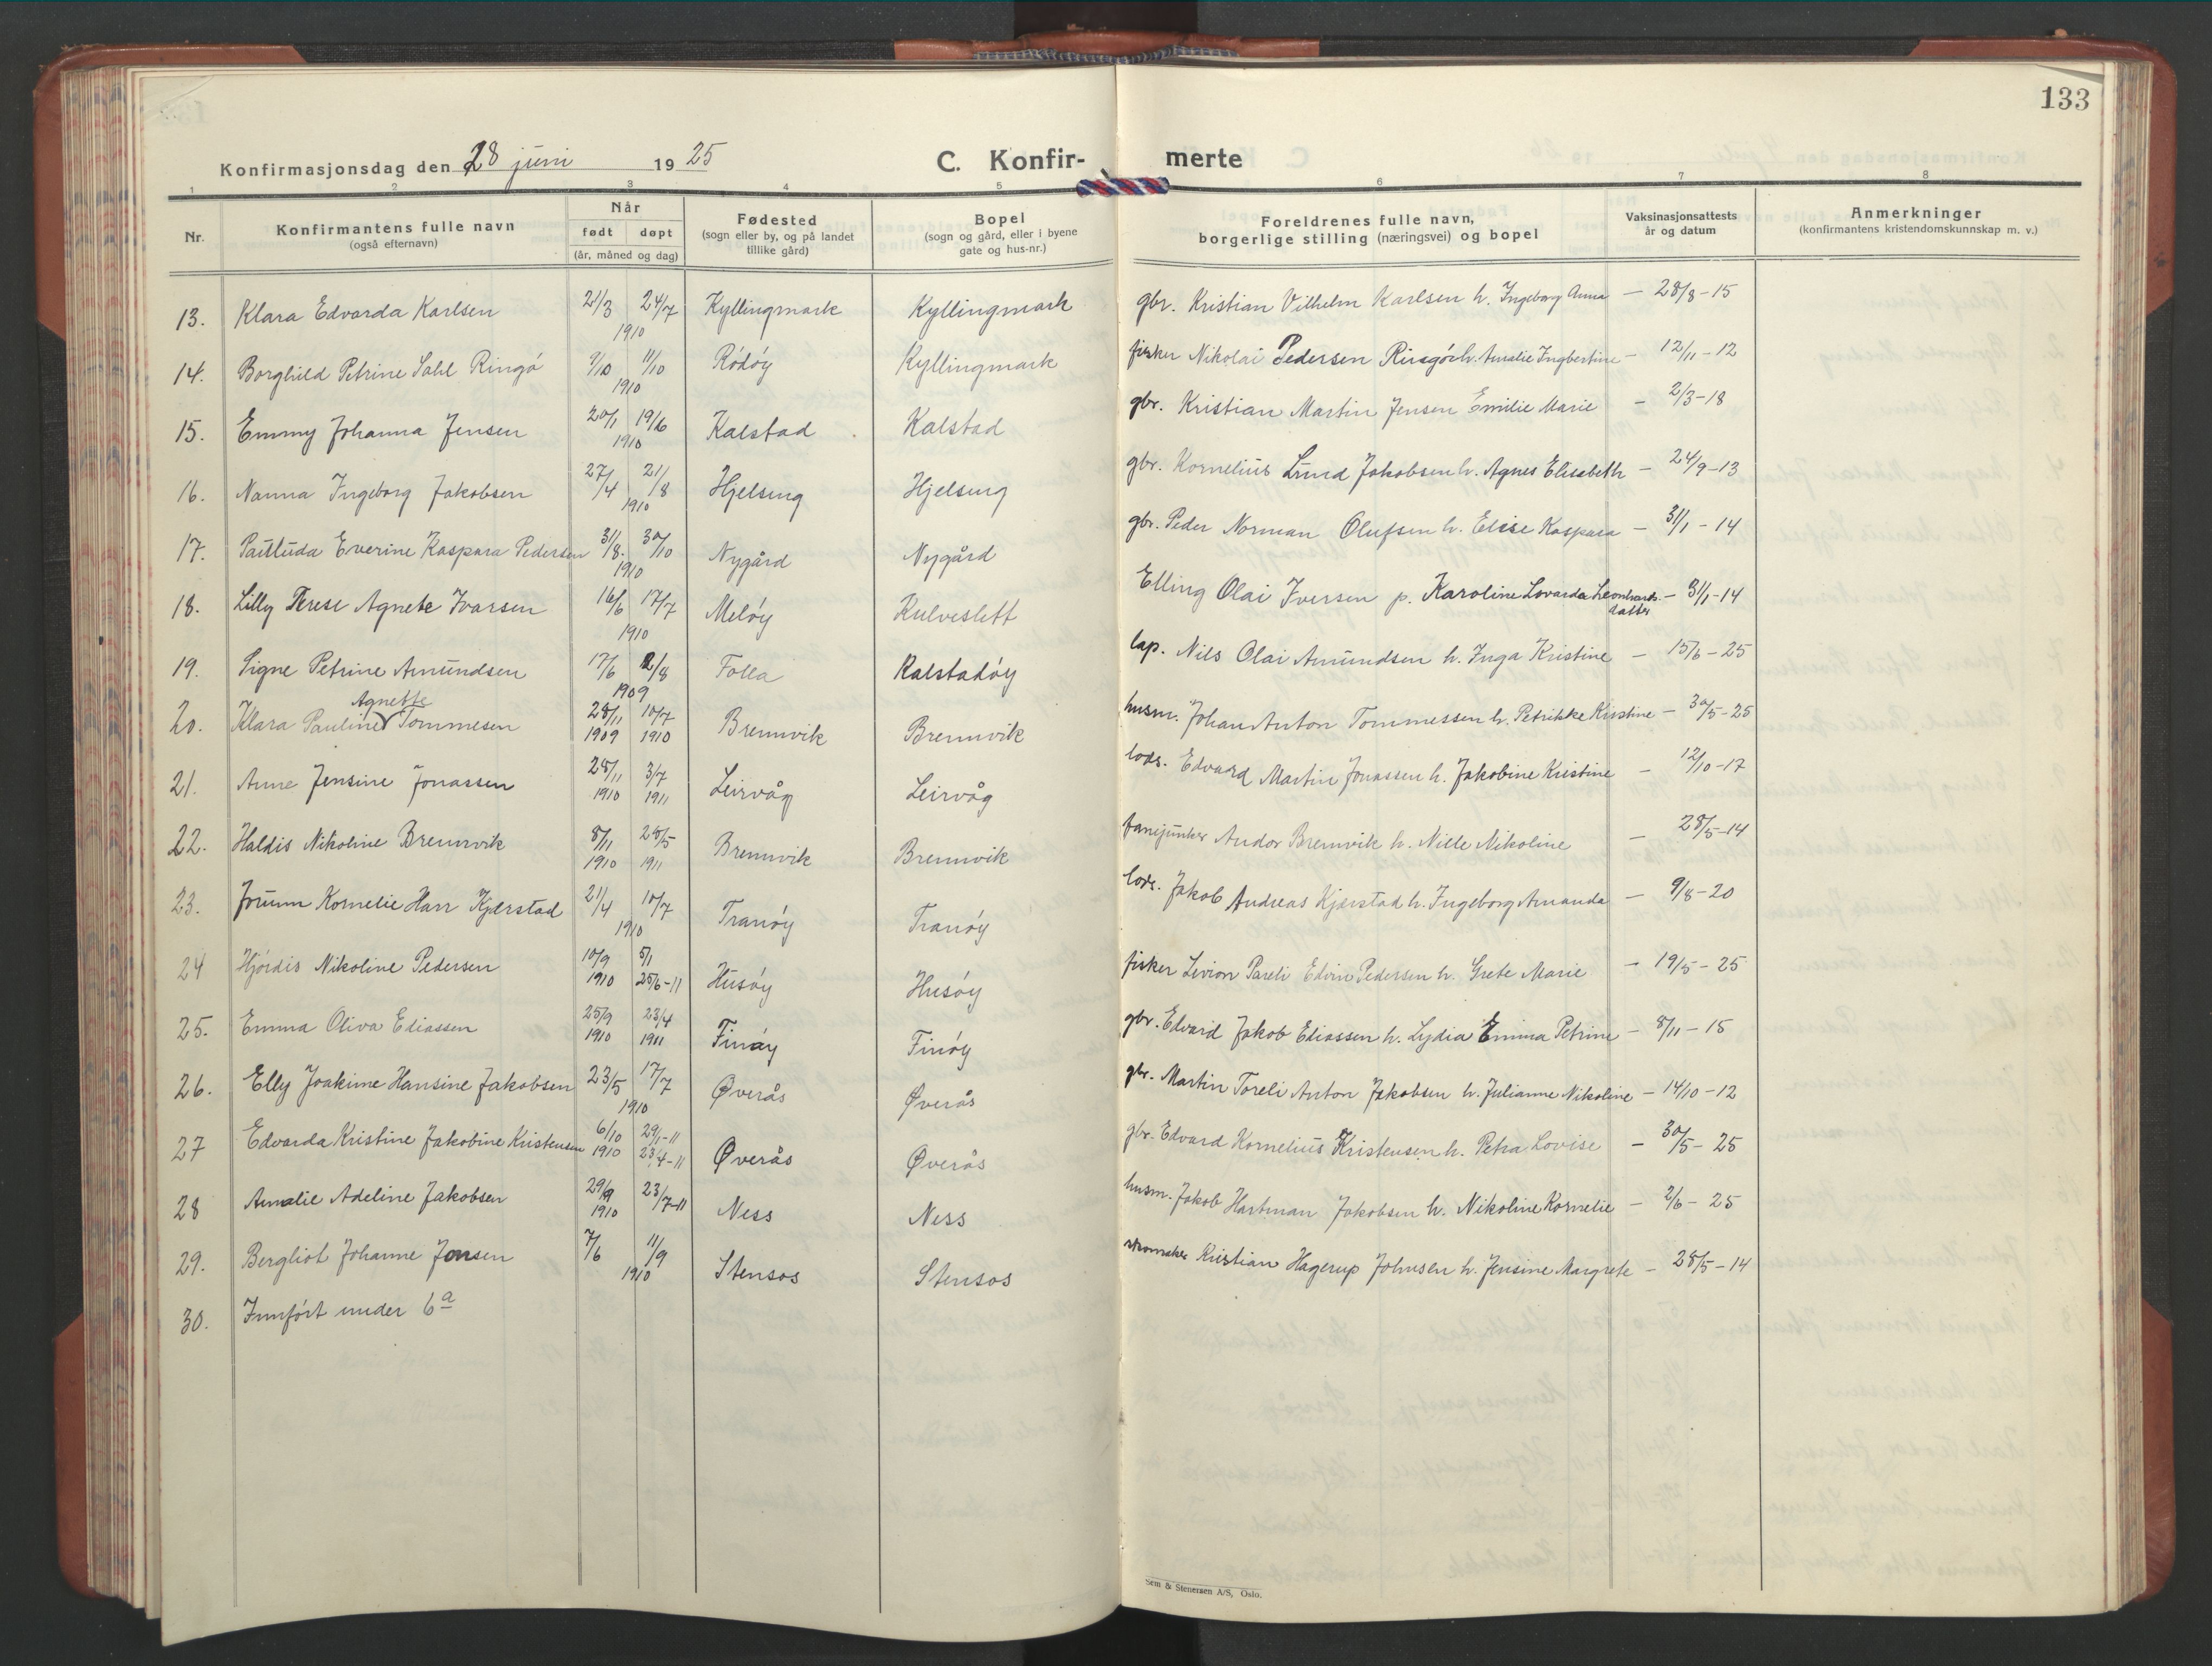 133
Konfirmasjonsdag den 28 juni 1925
C. Konfir- merte
1 2 3 4 5 6 7 8
Nr.
Konfirmantens fulle navn
(også efternavn)
Når
født døpt
(år, måned og dag)
Fødested
(sogn eller by, og på landet
tillike gård)
Bopel
(sogn og gård, eller i byene
gate og hus-nr.)
Foreldrenes fulle navn,
borgerlige stilling (næringsvei) og bopel
Vaksinasjonsattests
år og datum
Anmerkninger
(konfirmantens kristendomskunnskap m. v.)
13. Klara Edvarda Karlsen 21/3 24/7 1910 Kyllingmark Kyllingmark gbr. Kristian Vilhelm Karlsen h. Ingeborg Anna — 28/8-15
14. Borghild Petrine Sahl Ringö 11/10 1910 Rödöy Kyllingmark fisker Nikolai Pedersen Ringö h. Amalie Ingbertine — 12/11-12
15. Emmy Johanna Jensen 20/1 19/6 1910 Kalstad Kalstad gbr. Kristian Martin Jensen Emilie Marie — 2/3-18
16. Nanna Ingeborg Jakobsen 27/4 21/8 1910 Hjelseng Hjelseng gbr. Kornelius Lund Jakobsen h. Agnes Elisabeth — 24/9-13
17. Pauluda Everine Kaspara Pedersen 31/8. 30/10 1910 Nygård Nygård gbr. Peder Norman Olufsen h. Elise Kaspara — 31/1-14
18. Lilly Terese Agnete Ivarsen 16/6 17/7 1910 Melöy Kulveslett Elling Olai Iversen p. Karoline Lovarda Leonhards.datter — 31/1-14
19. Signe Petrine Amundsen 17/6 2/8 1909 Folla Kalstadöy lap. Nils Olai Amundsen h. Inga Kristine — 15/6-25
20. Klara Pauline Agnette Tommesen 28/11 1909 10/7 1910 Brennvik Brennvik husm. Johan Anton Tommessen h. Petrikke Kristine — 30/5-25
21. Anne Jensine Jonassen 28/11 1910 3/7 1911 Leirvåg Leirvåg lods. Edvard Martin Jonassen h. Jakobine Kristine — 12/10-17
22. Haldis Nikoline Brennvik 8/11 1910 28/5 1911 Brennvik Brennvik fanejunker Andor Brennvik h. Nille Nikoline — 28/5-14
23. Jorunn Kornelie Harr Kjærstad 21/4 10/7 1910 Tranöy Tranöy lods. Jakob Andreas Kjærstad h. Ingeborg Amanda — 9/8-20
24 Hjördis Nikoline Pedersen 10/9 1910 5/1 25/6-11 Husöy Husöy fisker Livion Pareli Edvin Pedersen h. Grete Marie — 19/5-25
25. Emma Oliva Eliassen 25/9 1910 23/4 1911 Finöy Finöy gbr. Edvard Jakob Eliassen h. Lydia Emma Petrine — 8/11-15
26. Elly Joakime Hansine Jakobsen 23/5 17/7 1910 Øverås Øverås gbr. Martin Toreli Anton Jakobsen h. Julianne Nikoline — 14/10-12
27 Edvarda Kristine Jakobine Kristensen 6/10 1910 29/1-11 23/4-11 Øverås Øverås gbr. Edvard Kornelius Kristensen h. Petra Lovise — 30/5-25
28 Amalie Adeline Jakobsen 29/9 1910 23/7-11 Ness Ness husm. Jakob Hartman Jakobsen h. Nikoline Kornelie — 2/6-25
29. Bergliot Johanne Jonsen 7/6 11/9 1910 Stensos Stensos skomaker Kristian Hagerup Johnsen h. Jensine Margrete — 28/5-14
30. Innfört under 6a
Sem & Stenersen A/S, Oslo.